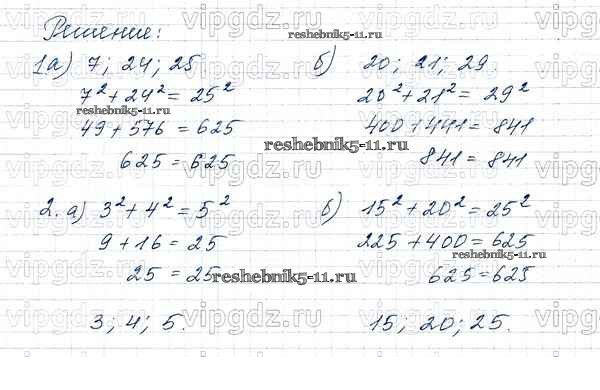 Решение:
1а) 7; 24; 25.
7² + 24² = 25²
49 + 576 = 625
625 = 625
б) 20; 21; 29.
20² + 21² = 29²
400 + 441 = 841
841 = 841
2. а) 3² + 4² = 5²
9 + 16 = 25
25 = 25
3; 4; 5.
б) 15² + 20² = 25²
225 + 400 = 625
625 = 625
15; 20; 25.
reshebnik5-11.ru
reshebnik5-11.ru
reshebnik5-11.ru
reshebnik5-11.ru
reshebnik5-11.ru
vipgdz.ru